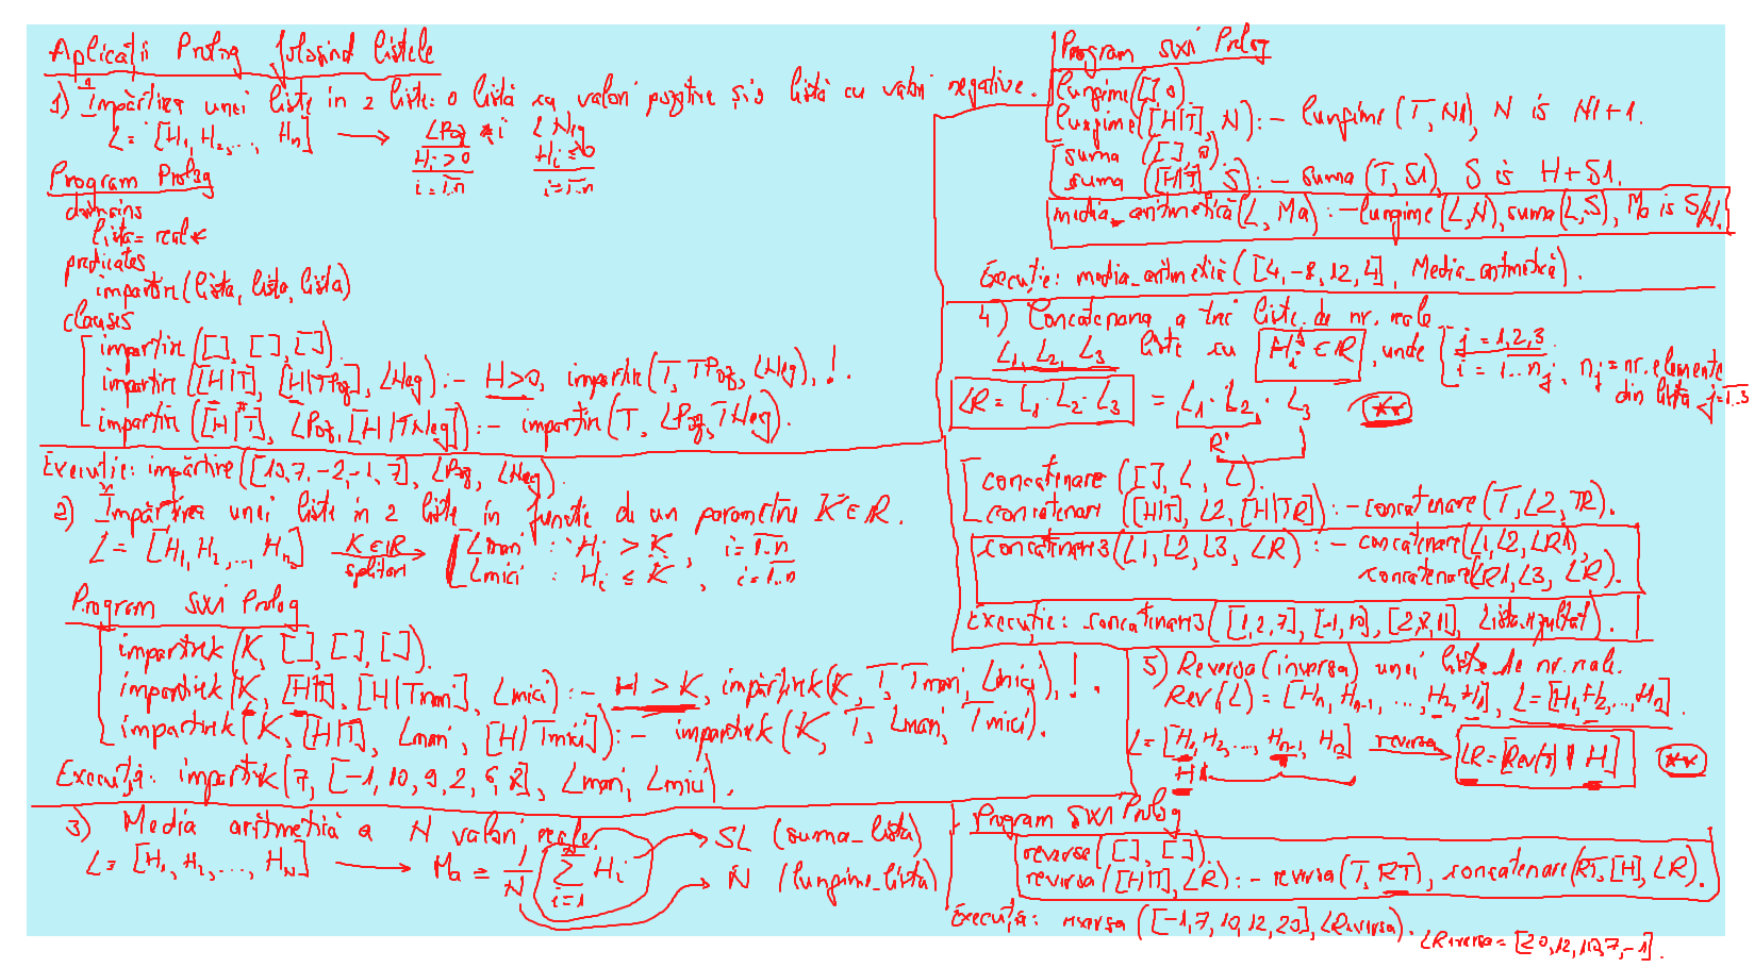 Aplicații Prolog folosind listele
1) Împărțirea unei liste în 2 liste: o listă cu valori pozitive și o listă cu valori negative.
L = [H1, H2, ..., Hn] → LPoz și LNeg
Hi > 0 Hi ≤ 0
i = 1..n i = 1..n
Program Prolog
domains
lista = real*
predicates
impartire(lista, lista, lista)
clauses
impartire([], [], []).
impartire([H|T], [H|TPoz], LNeg) :- H>0, impartire(T, TPoz, LNeg), !.
impartire([H|T], LPoz, [H|TNeg]) :- impartire(T, LPoz, TNeg).
Execuție: impărtire([10, 7, -2, -1, 7], LPoz, LNeg).
2) Împărtirea unei liste în 2 liste în funcție de un parametru K ∈ R.
L = [H1, H2, ..., Hn] K ∈ R → Lmari : Hi > K, i = 1..n
splitari Lmici : Hi ≤ K, i = 1..n
Program SWI Prolog
impartirek(K, [], [], []).
impartirek(K, [H|T], [H|Tmari], Lmici) :- H > K, impărtirek(K, T, Tmari, Lmici), !.
impartirek(K, [H|T], Lmari, [H|Tmici]) :- impartirek(K, T, Lmari, Tmici).
Execuția: impartirek(7, [-1, 10, 9, 2, 6, 8], Lmari, Lmici).
3) Media aritmetică a N valori reale.
L = [H1, H2, ..., HN] → Ma = 1/N ∑ i=1 N Hi
→ SL (suma_lista)
→ N (lungime_lista)
Program swi Prolog
lungime([], 0)
lungime([H|T], N) :- lungime(T, N1), N is N1+1.
suma([], 0)
suma([H|T], S) :- suma(T, S1), S is H+S1.
media_aritmetică(L, Ma) :- lungime(L, N), suma(L, S), Ma is S/N.
Execuție: media_aritmetică([4, -8, 12, 4], Media_aritmetică).
4) Concatenarea a trei liste de nr. reale
L1, L2, L3 liste cu Hi^j ∈ R, unde j = 1,2,3
i = 1..nj, nj = nr. elemente din lista j=1..3
LR = L1 · L2 · L3 = L1 · L2 · L3 **
R'
concatenare([], L, L).
concatenare([H|T], L2, [H|TR]) :- concatenare(T, L2, TR).
concatenare3(L1, L2, L3, LR) :- concatenare(L1, L2, LR1),
concatenare(LR1, L3, LR).
Execuție: concatenare3([1, 2, 7], [-1, 10], [2, 8, 11], Lista_rezultat).
5) Reversa (inversa) unei liste de nr. reale.
Rev(L) = [Hn, Hn-1, ..., H2, H1], L = [H1, H2, ..., Hn].
L = [H1, H2, ..., Hn-1, Hn] reversa → LR = [Rev(T) | H] **
H
Program SWI Prolog
reversa([], []).
reversa([H|T], LR) :- reversa(T, RT), concatenare(RT, [H], LR).
Execuția: reversa([-1, 7, 10, 12, 20], LReversa).
LReversa = [20, 12, 10, 7, -1].